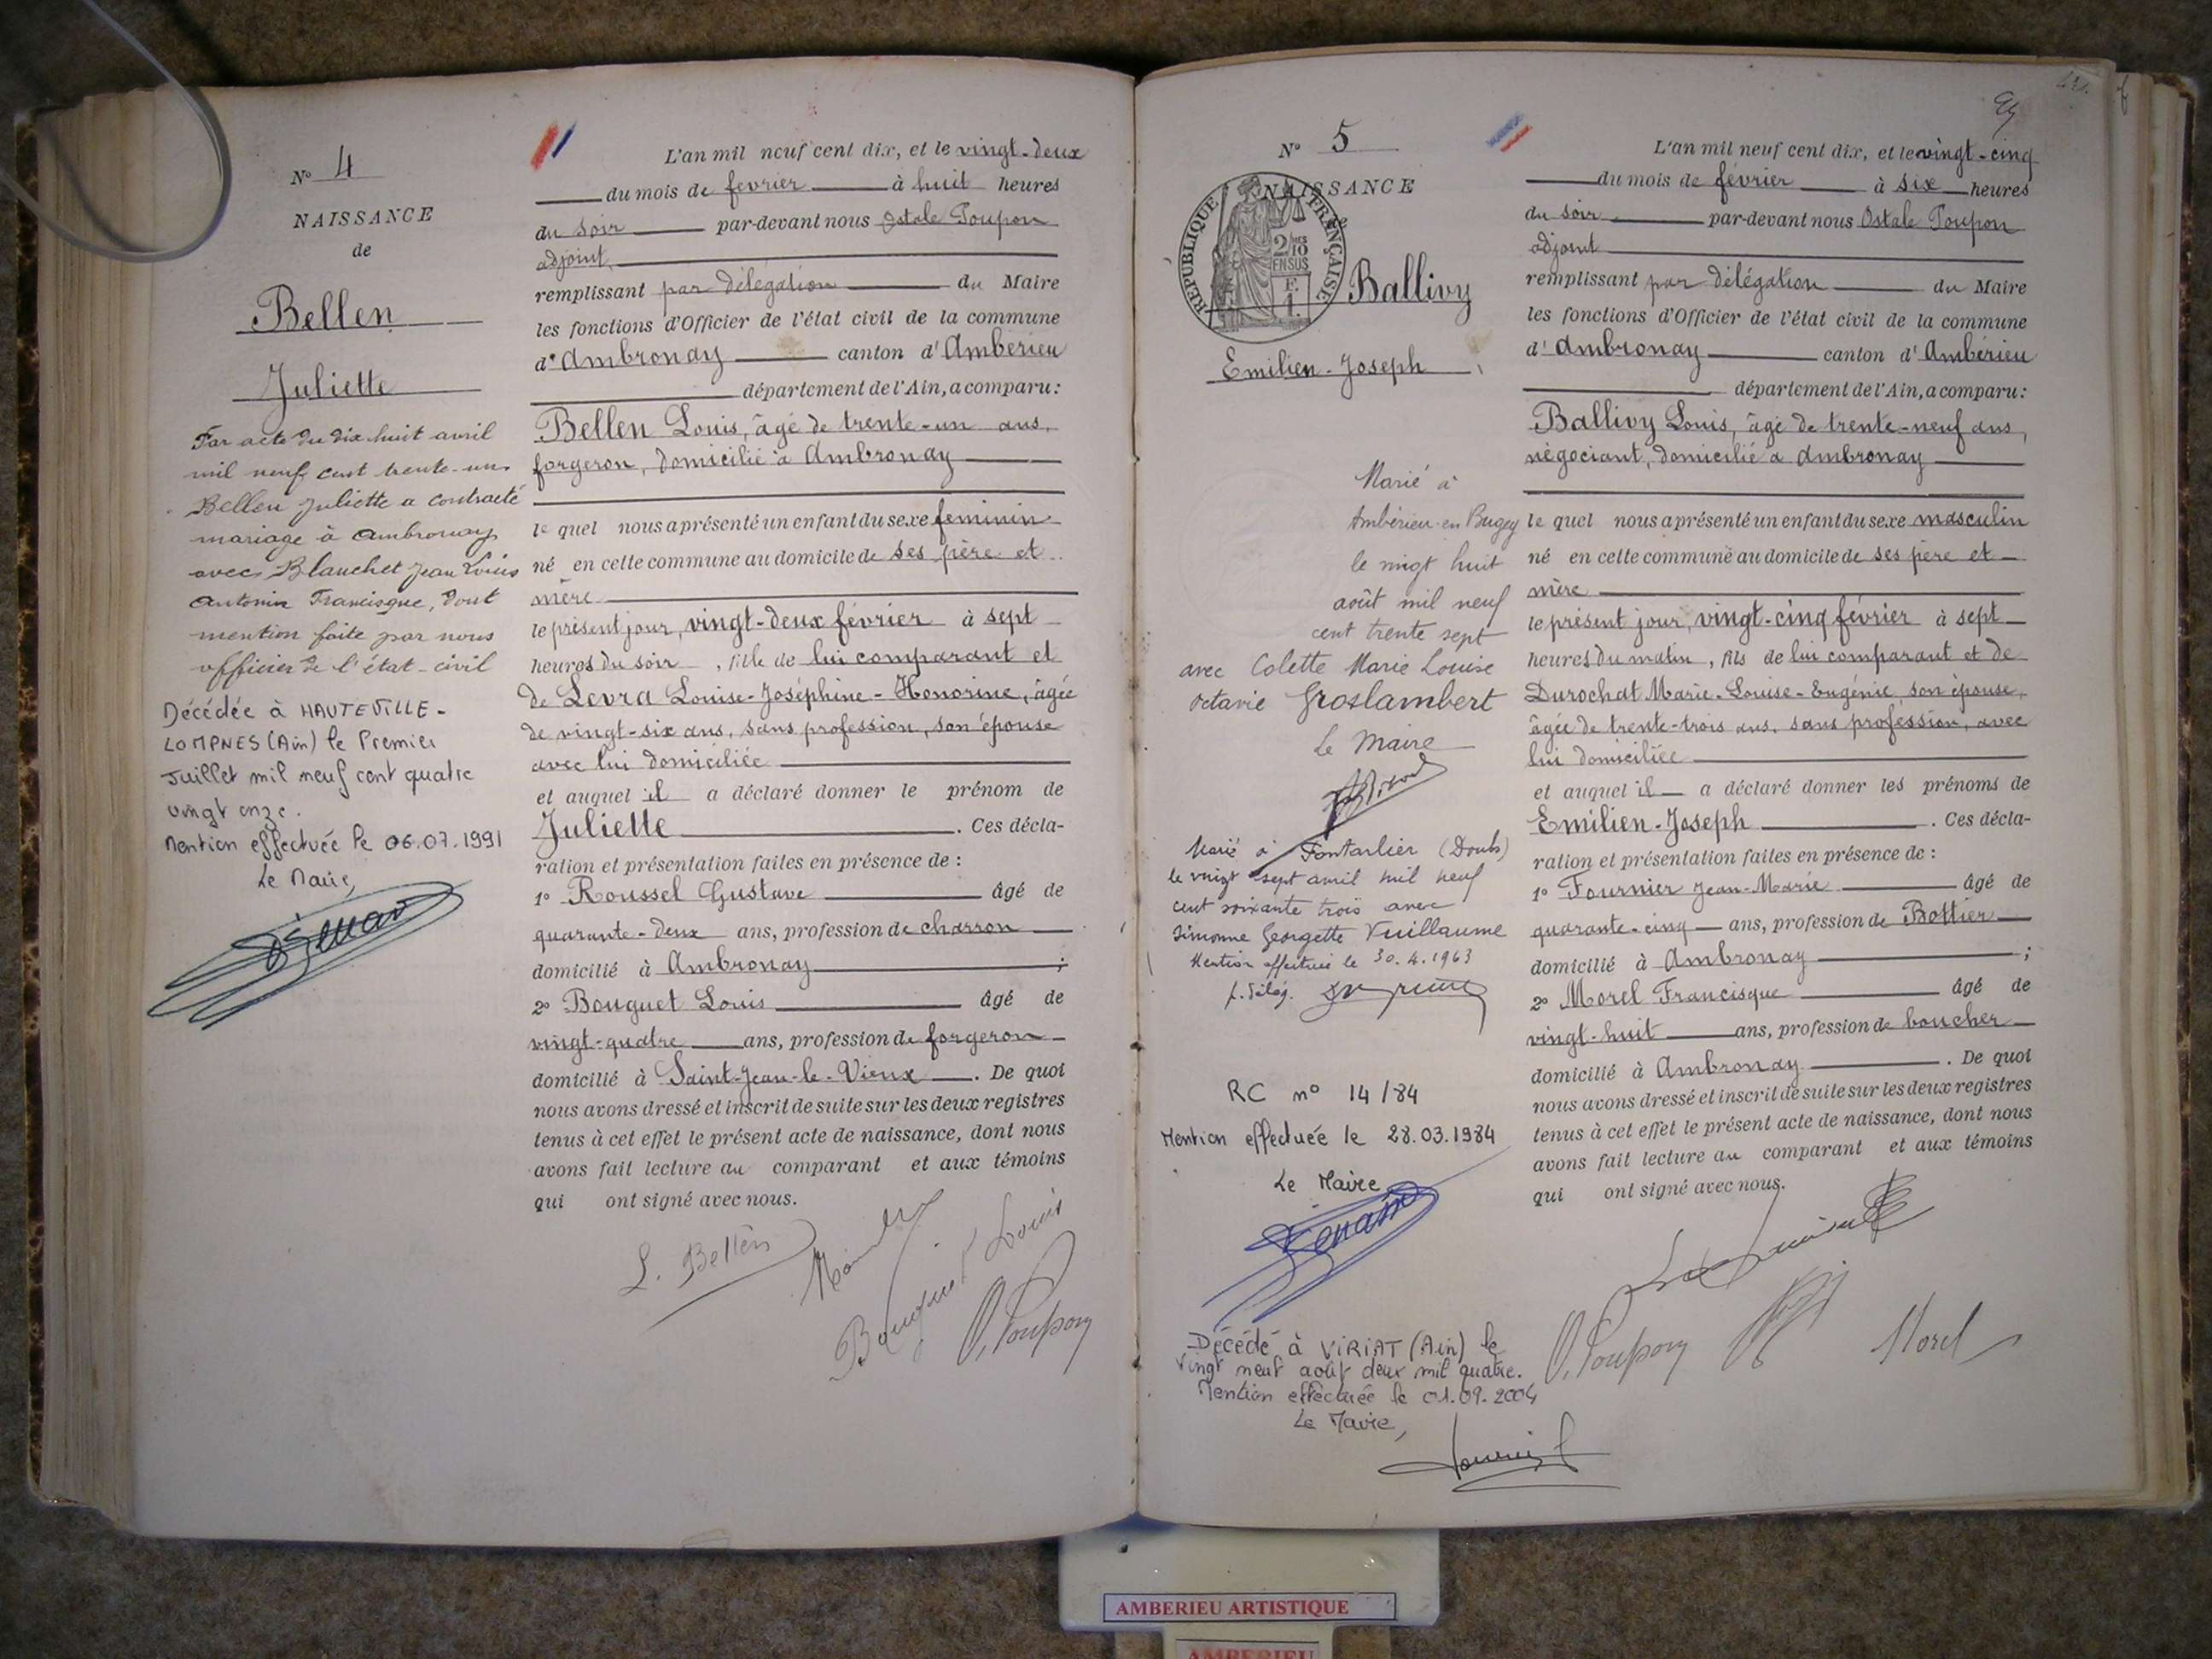 N° 4
NAISSANCE
de
Bellen
Juliette
Par acte du dix huit avril
mil neuf cent trente-un
Bellen Juliette a contracté
mariage à Ambronay
avec Blanchet Jean Louis
Antonin Francisque, dont
mention faite par nous
officier de l'état-civil
Décédée à HAUTEVILLE-
LOMPNES (Ain) le Premier
Juillet mil neuf cent quatre
vingt onze.
Mention effectuée le 06.07.1991
Le Maire,
L'an mil neuf cent dix, et le vingt-deux
du mois de fevrier à huit heures
du soir par-devant nous Ostale Poupon
adjoint
remplissant par délégation du Maire
les fonctions d'Officier de l'état civil de la commune
d'Ambronay canton d'Ambérieu
département de l'Ain, a comparu:
Bellen Louis, âgé de trente-un ans,
forgeron, domicilié à Ambronay
lequel nous a présenté un enfant du sexe feminin
né en cette commune au domicile de ses père et
mère
le présent jour, vingt-deux février à sept
heures du soir, fille de lui comparant et
de Levra Louise-Joséphine-Honorine, âgée
de vingt-six ans, sans profession, son épouse
avec lui domiciliée
et auquel il a déclaré donner le prénom de
Juliette. Ces décla-
ration et présentation faites en présence de :
1° Roussel Gustave âgé de
quarante-deux ans, profession de charron
domicilié à Ambronay ;
2° Bouguet Louis âgé de
vingt-quatre ans, profession de forgeron
domicilié à Saint-Jean-le-Vieux. De quoi
nous avons dressé et inscrit de suite sur les deux registres
tenus à cet effet le présent acte de naissance, dont nous
avons fait lecture au comparant et aux témoins
qui ont signé avec nous.
L. Bellen
Bouguet Louis
O. Poupon
N° 5
NAISSANCE
RÉPUBLIQUE FRANÇAISE
2/10
EN SUS
F.
1.
Ballivy
Emilien-Joseph
Marié à
Ambérieu-en-Bugey
le vingt huit
août mil neuf
cent trente sept
avec Colette Marie Louise
Octavie Groslambert
Le Maire
Marié à Pontarlier (Doubs)
le vingt sept avril mil neuf
cent soixante trois avec
Simonne Georgette Vuillaume
Mention effectuée le 30.4.1963
RC n° 14/84
Mention effectuée le 28.03.1984
Le Maire
Décédé à VIRIAT (Ain) le
vingt neuf août deux mil quatre.
Mention effectuée le 01.09.2004
Le Maire,
L'an mil neuf cent dix, et le vingt-cinq
du mois de février à six heures
du soir par-devant nous Ostale Poupon
adjoint
remplissant par délégation du Maire
les fonctions d'Officier de l'état civil de la commune
d'Ambronay canton d'Ambérieu
département de l'Ain, a comparu:
Ballivy Louis, âgé de trente-neuf ans,
négociant, domicilié à Ambronay
lequel nous a présenté un enfant du sexe masculin
né en cette commune au domicile de ses père et
mère
le présent jour, vingt-cinq février à sept
heures du matin, fils de lui comparant et de
Durochat Marie-Louise-Eugénie, son épouse,
âgée de trente-trois ans, sans profession, avec
lui domiciliée
et auquel il a déclaré donner les prénoms de
Emilien-Joseph. Ces décla-
ration et présentation faites en présence de :
1° Fournier Jean-Marie âgé de
quarante-cinq ans, profession de Bottier
domicilié à Ambronay ;
2° Morel Francisque âgé de
vingt-huit ans, profession de boucher
domicilié à Ambronay. De quoi
nous avons dressé et inscrit de suite sur les deux registres
tenus à cet effet le présent acte de naissance, dont nous
avons fait lecture au comparant et aux témoins
qui ont signé avec nous.
O. Poupon
Morel
AMBERIEU ARTISTIQUE
AMBERIEU